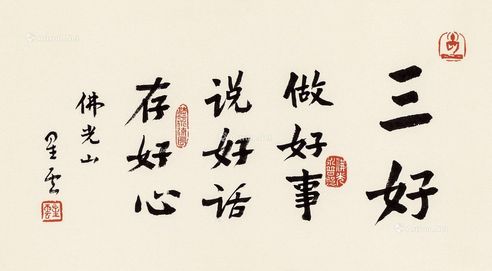 三好
做好事
说好话
存好心
佛光山
星云